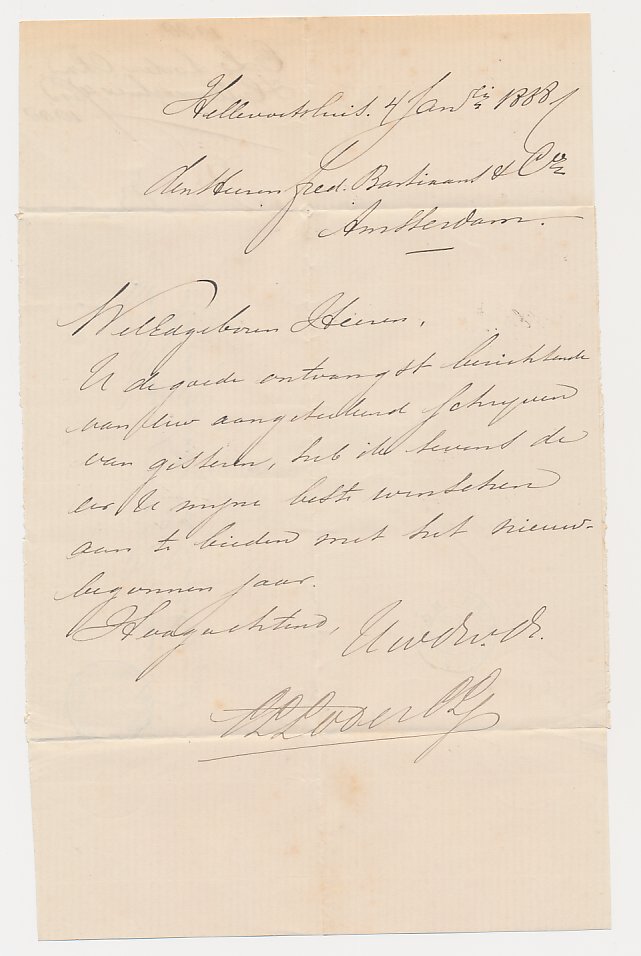 Hellevoetsluis. 4 Jan 1888
den Heeren Fred. Bastiaans & Co
Amsterdam.
WelEdgeboren Heeren,
U de goede ontvangst berichtende
van Uw aangeteekend schrijven
van gisteren, heb ik tevens de
eer U mijne beste wenschen
aan te bieden met het nieuw-
begonnen jaar.
Hoogachtend,
Uw Dw. Dr.